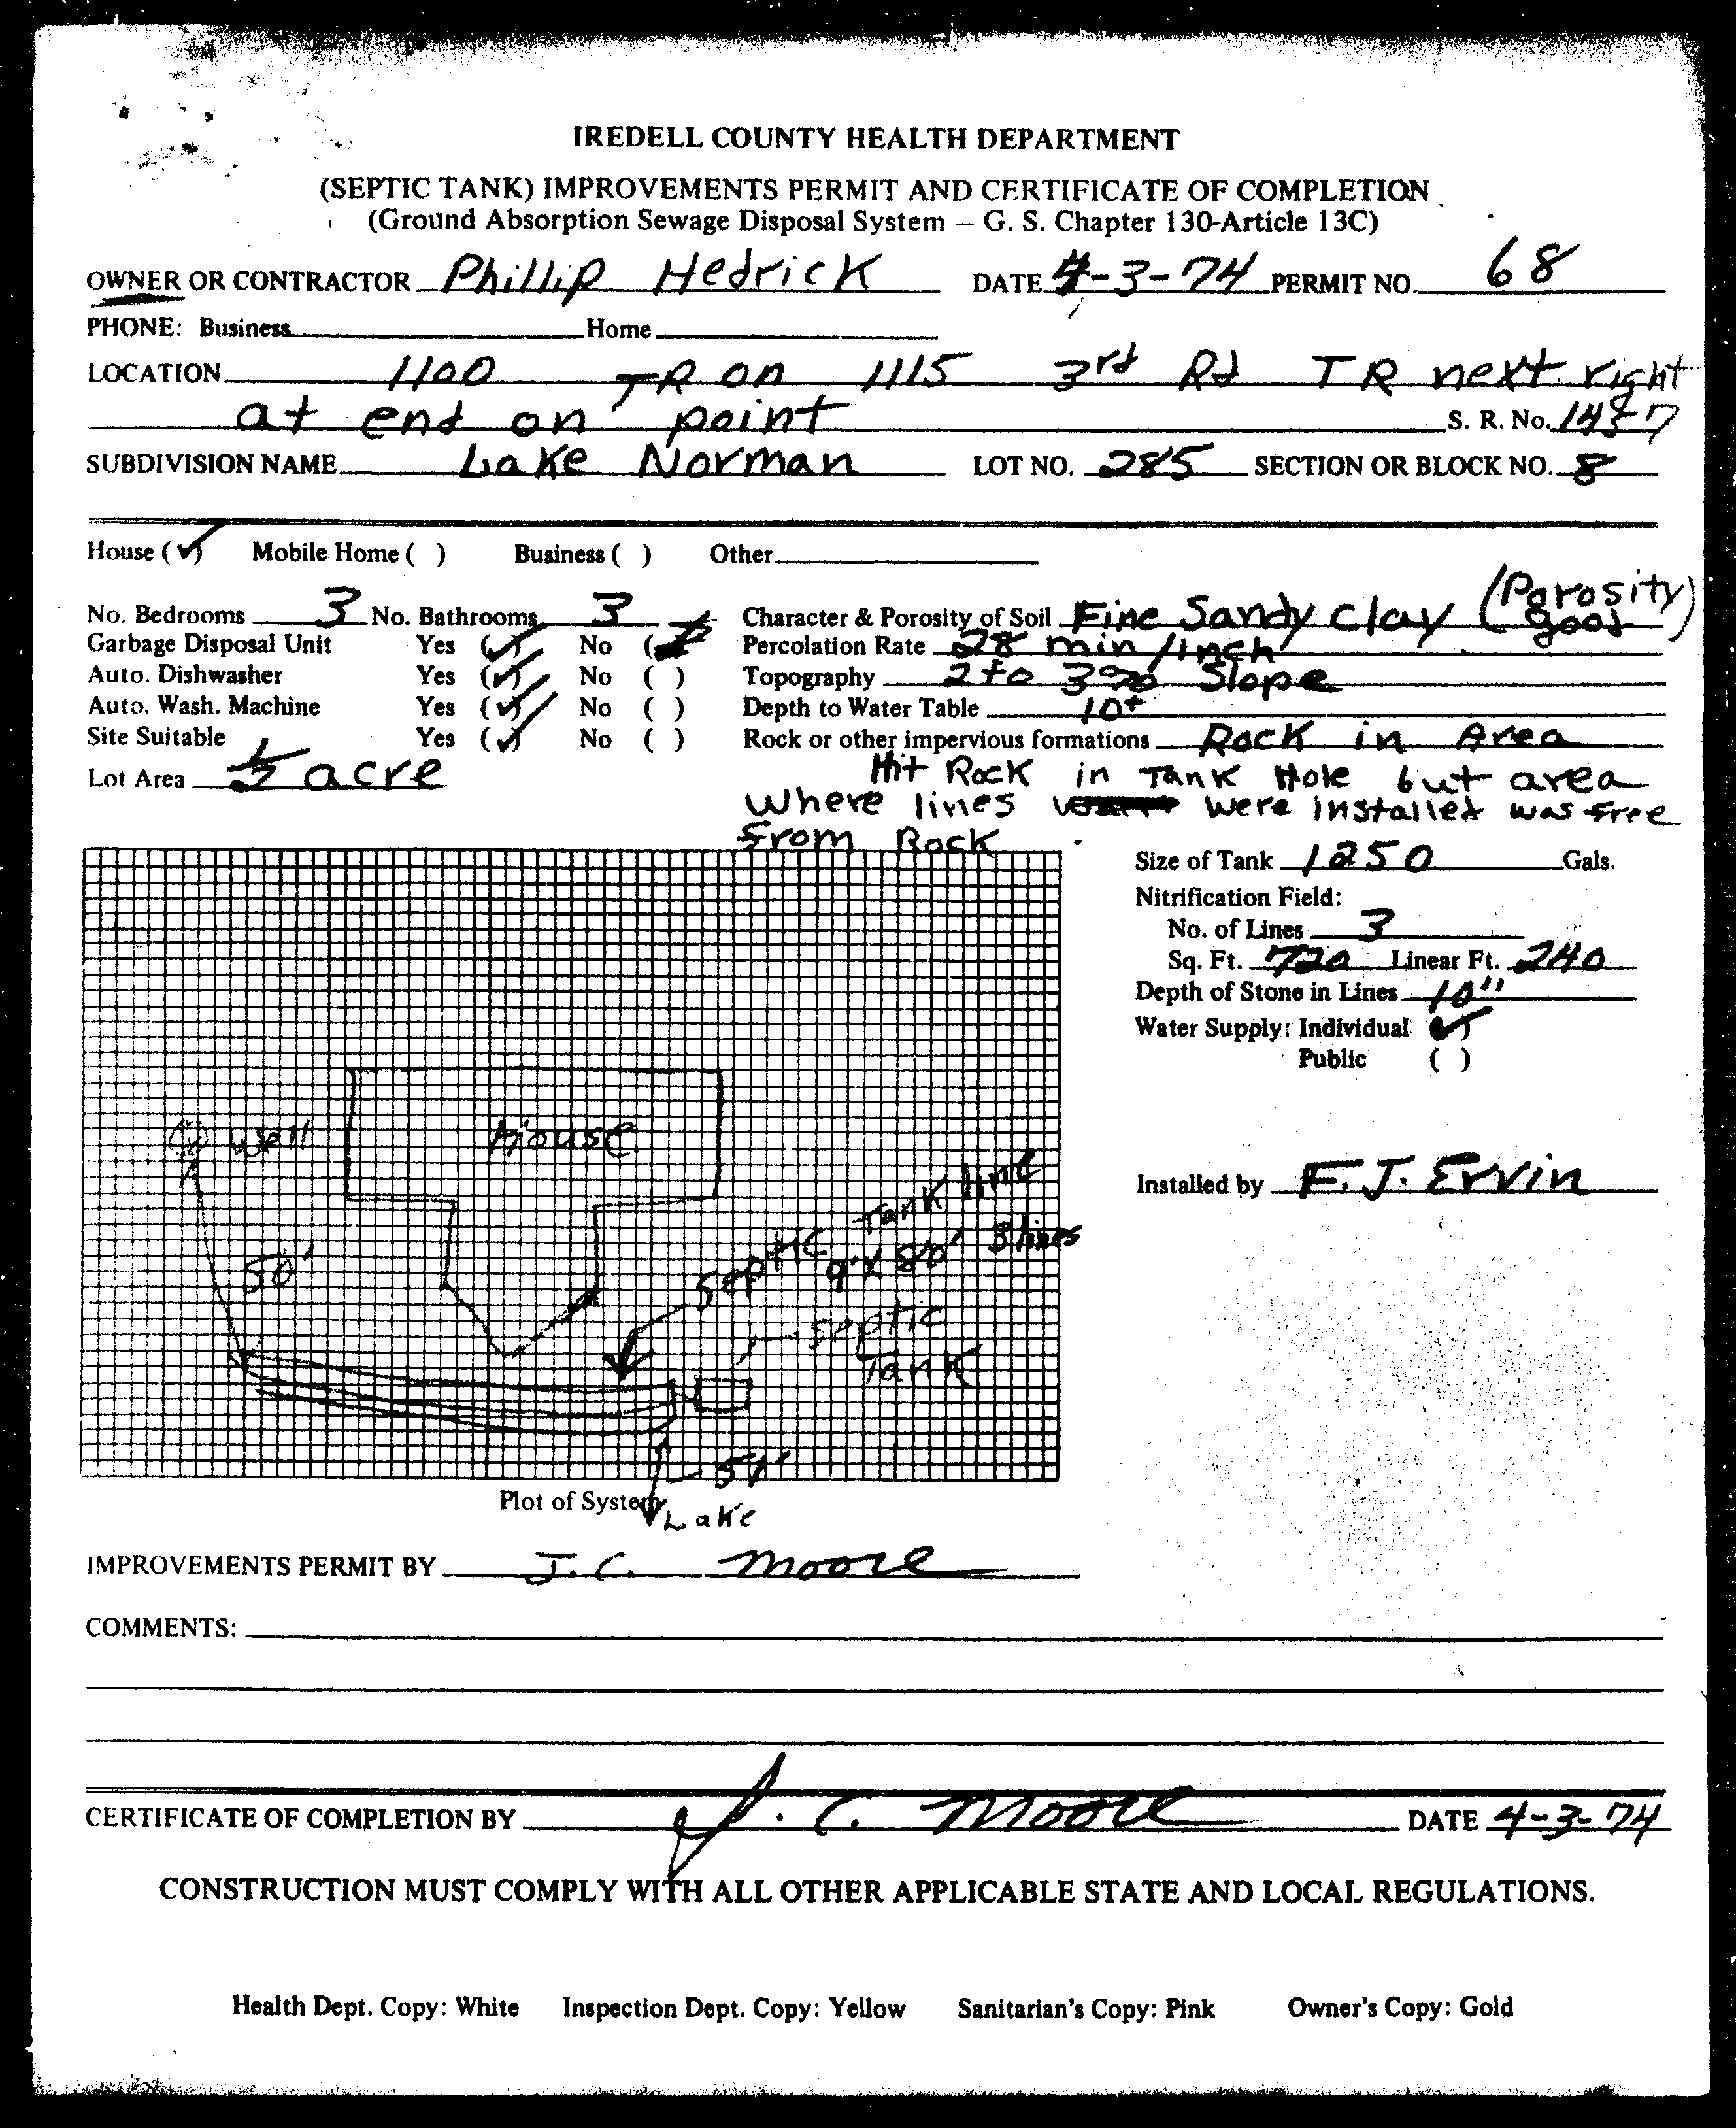 IREDELL COUNTY HEALTH DEPARTMENT
(SEPTIC TANK) IMPROVEMENTS PERMIT AND CERTIFICATE OF COMPLETION
(Ground Absorption Sewage Disposal System – G. S. Chapter 130-Article 13C)
OWNER OR CONTRACTOR Phillip Hedrick DATE 4-3-74 PERMIT NO. 68
PHONE: Business Home
LOCATION 1100 TR on 1115 3rd Rd TR next right
at end on point S. R. No.
SUBDIVISION NAME Lake Norman LOT NO. 285 SECTION OR BLOCK NO. 8
House (✓) Mobile Home ( ) Business ( ) Other
No. Bedrooms 3 No. Bathrooms 3
Garbage Disposal Unit Yes (✓) No ( )
Auto. Dishwasher Yes (✓) No ( )
Auto. Wash. Machine Yes (✓) No ( )
Site Suitable Yes (✓) No ( )
Lot Area 1/2 acre
Character & Porosity of Soil Fine Sandy Clay (Porosity good)
Percolation Rate 28 min/inch
Topography 2 to 3% Slope
Depth to Water Table 10+
Rock or other impervious formations Rock in Area
Hit Rock in Tank Hole but area
Where lines were installed was free
from Rock
Size of Tank 1250 Gals.
Nitrification Field:
No. of Lines 3
Sq. Ft. 720 Linear Ft. 240
Depth of Stone in Lines 10"
Water Supply: Individual (✓)
Public ( )
Installed by F. J. Ervin
Well
House
50'
Septic Tank line
80' 3 lines
Septic
Tank
Lake
Plot of System
IMPROVEMENTS PERMIT BY J. C. Moore
COMMENTS:
CERTIFICATE OF COMPLETION BY J. C. Moore DATE 4-3-74
CONSTRUCTION MUST COMPLY WITH ALL OTHER APPLICABLE STATE AND LOCAL REGULATIONS.
Health Dept. Copy: White Inspection Dept. Copy: Yellow Sanitarian's Copy: Pink Owner's Copy: Gold